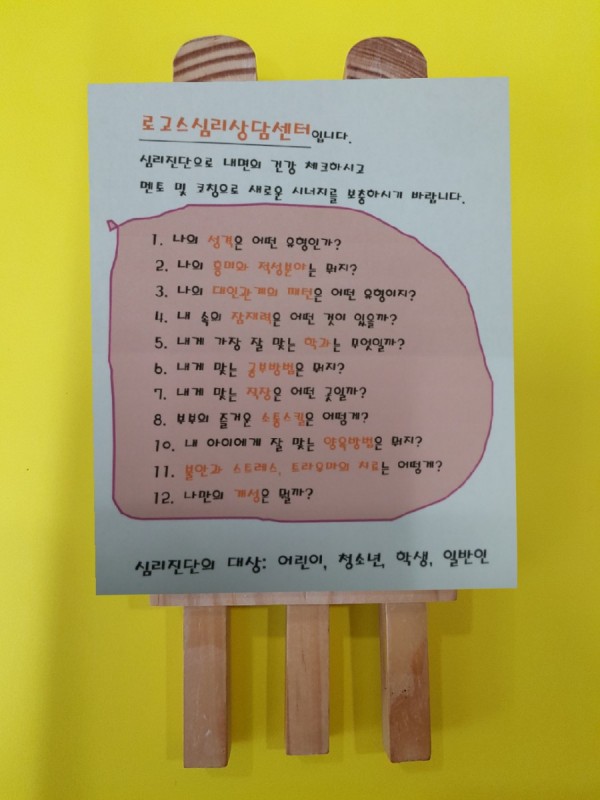 로고스심리상담센터입니다.
심리진단으로 내면의 건강 체크하시고
멘토 및 코칭으로 새로운 시너지를 보충하시기 바랍니다.
1. 나의 성격은 어떤 유형인가?
2. 나의 흥미와 적성분야는 뭐지?
3. 나의 대인관계의 패턴은 어떤 유형이지?
4. 내 속의 잠재력은 어떤 것이 있을까?
5. 내게 가장 잘 맞는 학과는 무엇일까?
6. 내게 맞는 공부방법은 뭐지?
7. 내게 맞는 직장은 어떤 곳일까?
8. 부부의 즐거운 소통스킬은 어떻게?
10. 내 아이에게 잘 맞는 양육방법은 뭐지?
11. 불안과 스트레스, 트라우마의 치료는 어떻게?
12. 나만의 개성은 뭘까?
심리진단의 대상: 어린이, 청소년, 학생, 일반인